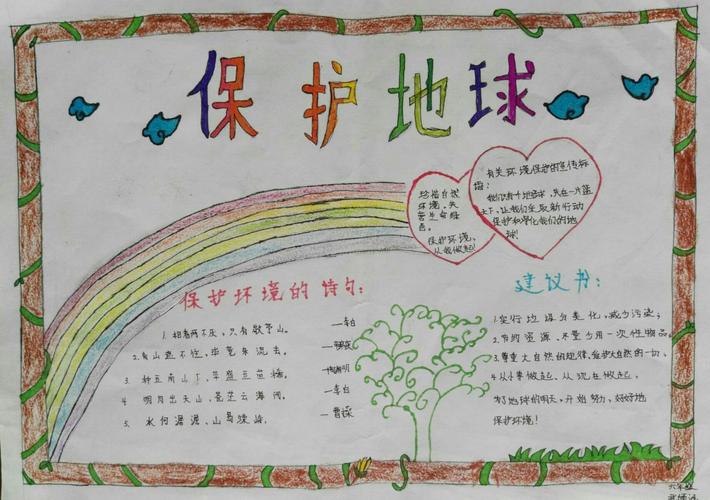 保护地球
珍惜自然
环境,共
营生命绿
色。
保护环境、
从我做起!
有关环境保护的宣传标
语:
我们只有一个地球,共在一片蓝
天下,让我们采取新行动
保护和净化我们的地
球!
保护环境的诗句:
1. 相看两不厌,只有敬亭山。 —李白
2. 青山遮不住,毕竟东流去。
3. 种豆南山下,草盛豆苗稀。 —陶渊明
4 明月出天山,苍茫云海间。 —李白
5. 水何澹澹,山岛竦峙。 —曹操
建议书:
1.实行垃圾分类化,减少污染;
2.节约资源、尽量少用一次性物品
3.尊重大自然的规律,爱护大自然的一切、
4.从小事做起、从现在做起。
为了地球的明天,开始努力,好好地
保护环境!